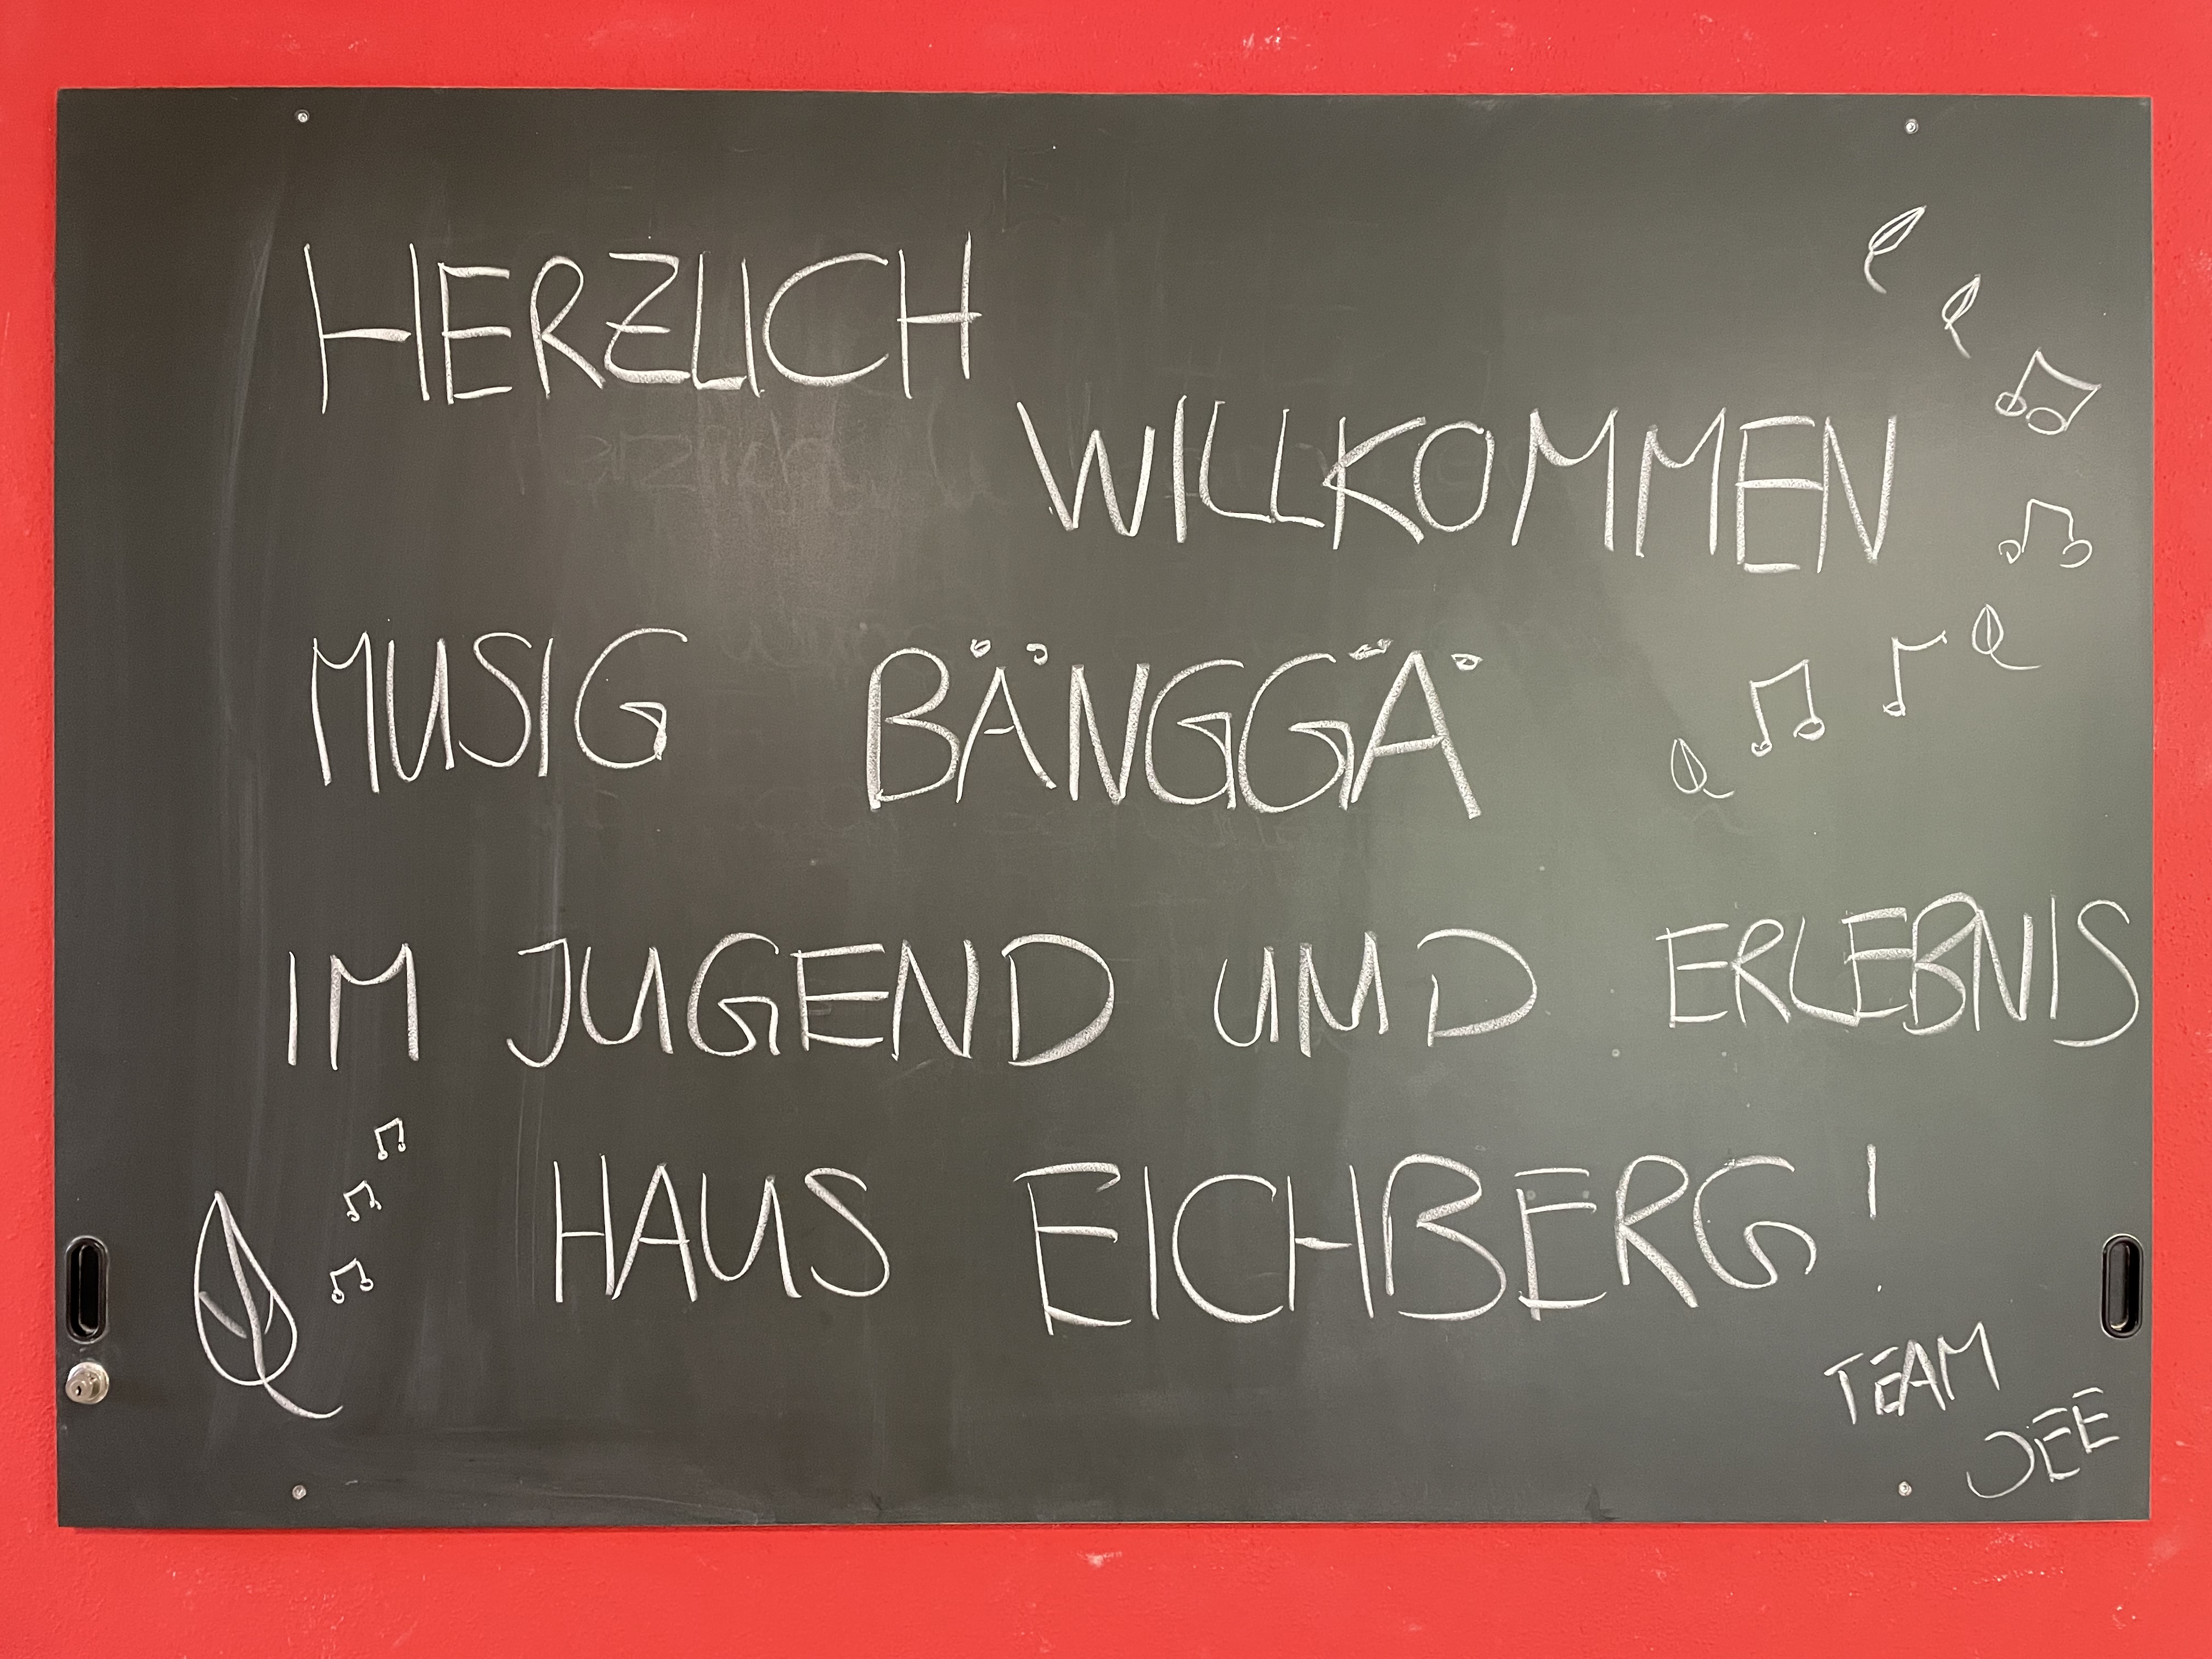 HERZLICH
WILLKOMMEN
MUSIG BÄNGGÄ
IM JUGEND UMD ERLEBNIS
HAUS EICHBERG!
TEAM
JEE